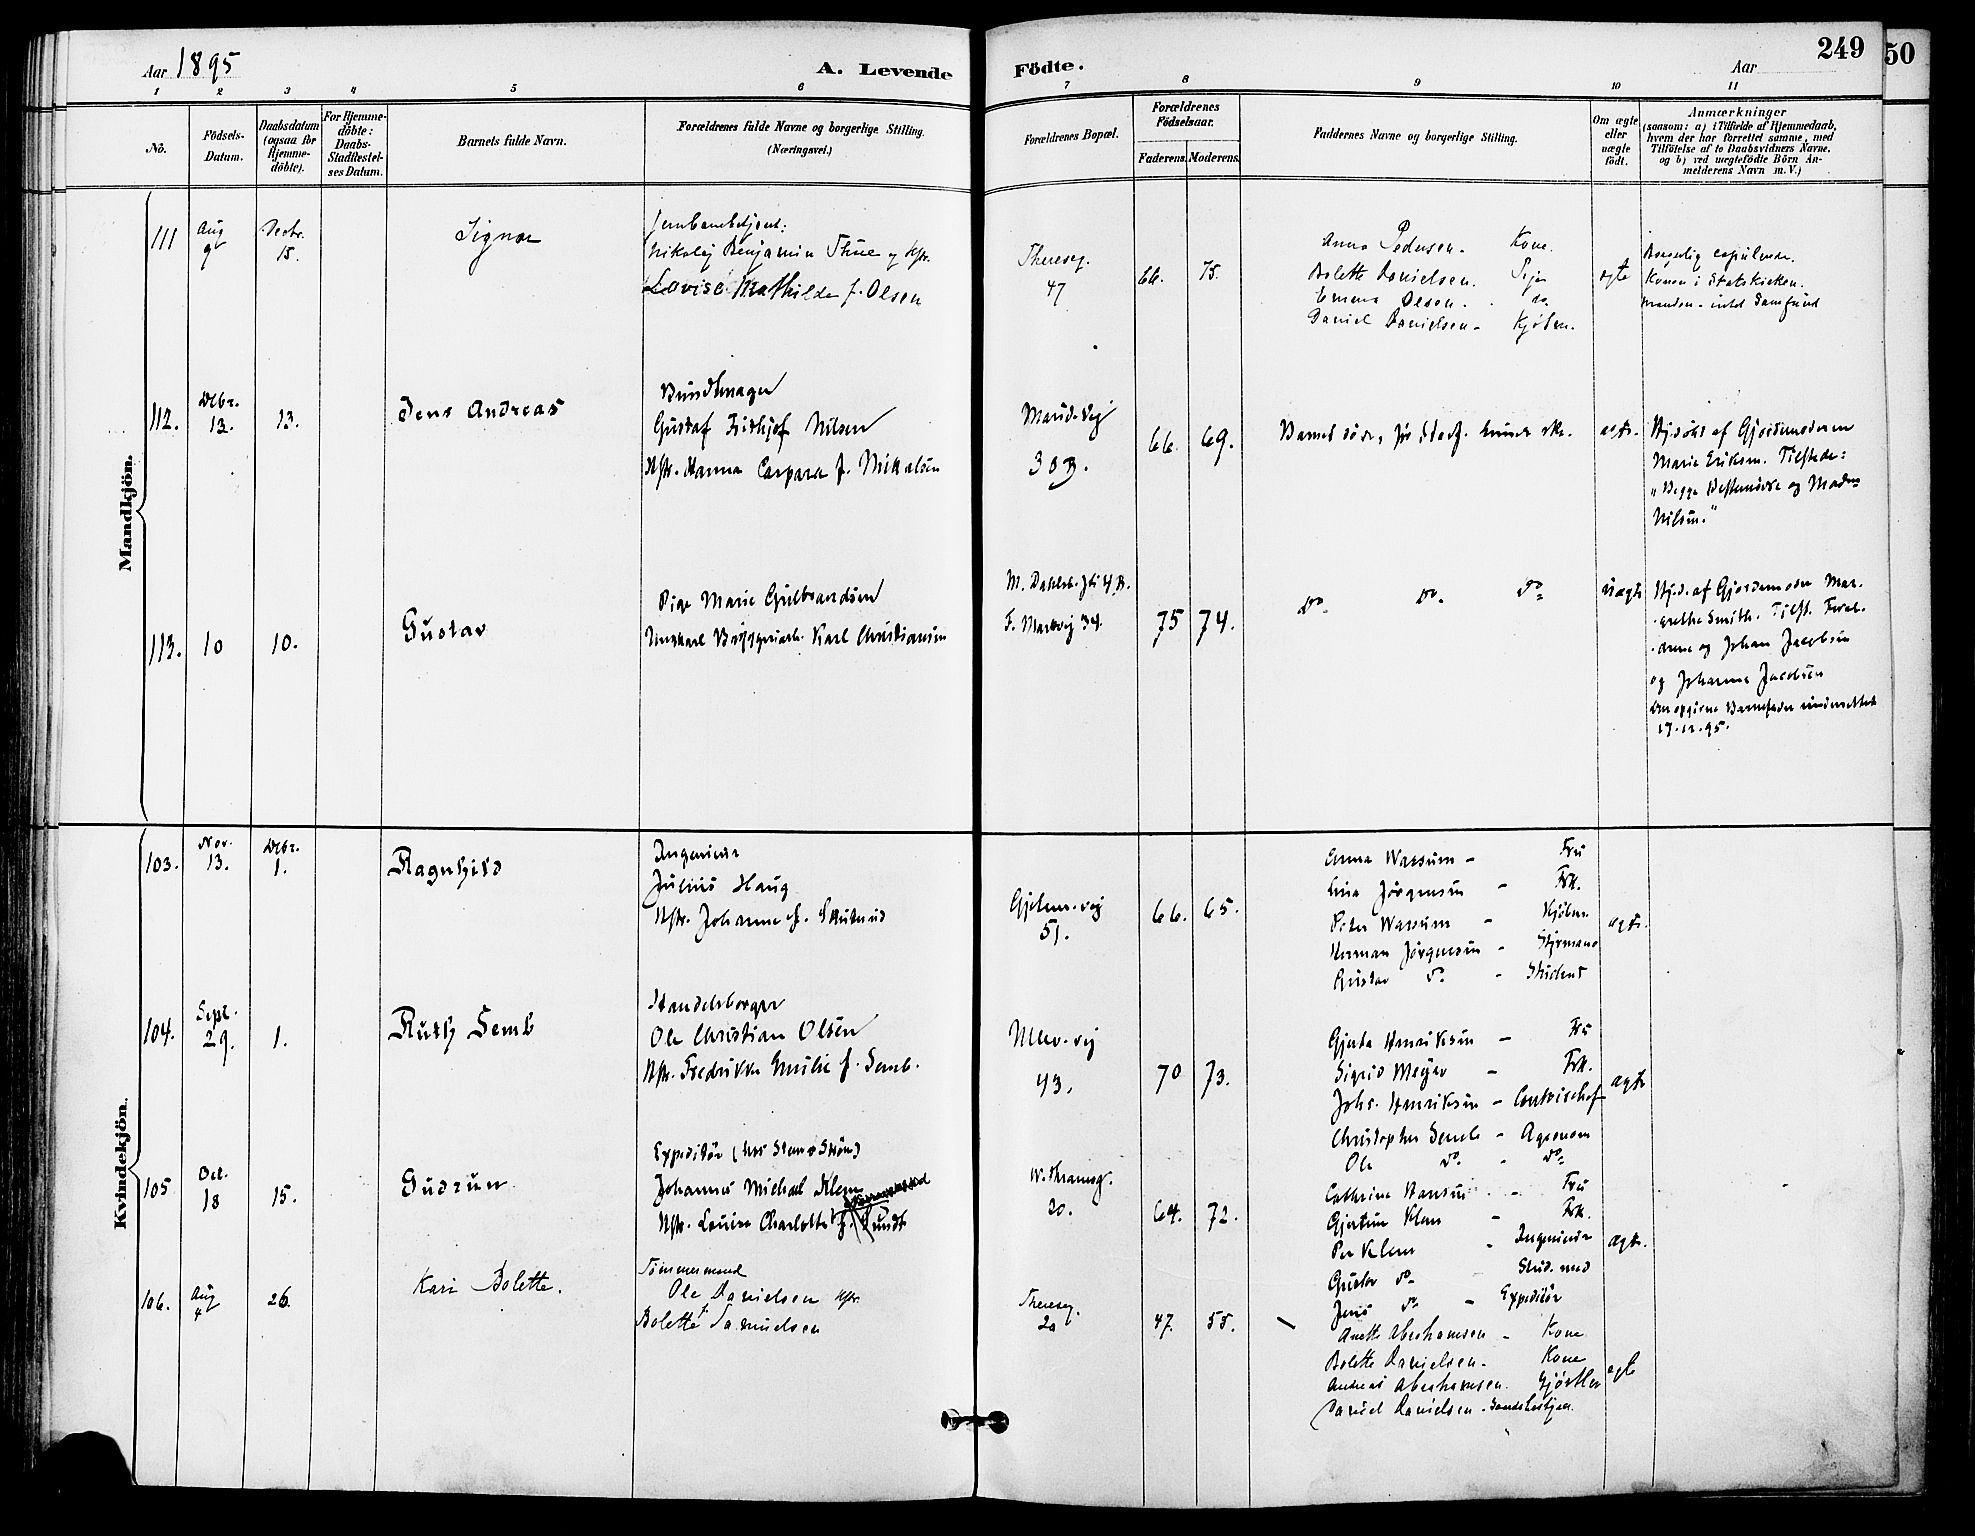 Aar 1895
A. Levende
Födte.
Aar
249
50
1 2 3 4 5 6 7 8 9 10 11
No.
Födsels-Datum.
Daabsdatum (ogsaa for Hjemme-döbte).
For Hjemme-döbte: Daabs-Stadfæstel-ses Datum.
Barnets fulde Navn.
Forældrenes fulde Navne og borgerlige Stilling.
(Næringsvei.)
Forældrenes Bopæl.
Forældrenes Födselsaar.
Faderens. Moderens.
Faddernes Navne og borgerlige Stilling.
Om ægte eller uægte födt.
Anmærkninger
(saasom: a) i Tilfælde af Hjemmedaab,
hvem der har forrettet samme, med
Tilföielse af to Daabsvidners Navne,
og b) ved uægtefödte Börn An-
melderens Navn m. V.)
Mandkjön.
111 Aug 9 Decbr. 15.
Signor
Jernbanebetjent:
Nikolaj Benjamin Thue og Hstr.
Lovise Mathilde f. Olsen
Thereseg. 47
66. 75.
Anna Pedersen - Kone.
Bolette Danielsen. Pige
Emma Olsen - do.
Daniel Danielsen - Kjöbm.
ægte
Borgerlig copulerede.
Konen i Statskirken.
Manden - intet Samfund
112. Decbr. 13. 13.
Jens Andreas
Bundtmager
Gustaf Fridthjof Nilsen
Hstr. Hanna Caspara f. Mikalsen
Maridalsvej 30 B.
66. 69.
Barnet döde, för Stadf. kunde ske.
ægte.
Hj.döbt af Gjordemoderen
Marie Eriksen. Tilstede:
"Begge Bestemödre og Madam
Nilsen."
113. 10 10.
Gustav
Pige Marie Gulbrandsen
Ungkarl Bryggeriarb. Karl Christiansen
M. 4 B.
F. Markvej 34.
75 74.
Do. Do. Do.
uægte
Hj.d. af Gjordemoder Mar-
grethe Smith. Tilst. Foræl-
drene og Johan Jacobsen
og Johanna Jacobsen
Den opgivne Barnefader underrettet
17.12.95.
Kvindekjön.
103. Nov. 13. Decbr. 1.
Ragnhild
Ingeniör
Julius Haug
Hstr. Johanne f. Skuterud
51.
66. 65.
Anna Wassum - Fru
Lina Jörgensen - Frk.
Peter Wassum - Kjöbm.
Herman Jörgensen - Styrmand
Gustav Do. - Student
ægte.
104. Sept. 29. 1.
Ruth Semb
Handelsborger
Ole Christian Olsen
Hstr. Fredrikke Emilie f. Semb.
Ullev.vej 43.
70 73.
Gjerda Henriksen - Fru
Sigrid Meyer - Frk.
Johs. Henriksen - Contorchef
Christopher Semb - Agronom
Ole Do. - Do.
ægte
105 Oct. 18 15.
Gudrun
Johannes Michael Klem
Hstr. Louise Charlotte f. Lundt
W. Thranesg. 20.
64. 72.
Cathrine Hansen - Fru
Gjertine Klem - Frk.
Per Klem - Ingeniör
Gustav Do. - Stud. med
Jens Do. - Expeditör
ægte.
106. Aug 4 26.
Kari Bolette.
Tömmermand
Ole Danielsen Hstr.
Bolette f. Samuelsen
Thereseg. 2a
47. 55.
Anette Abrahamsen - Kone
Bolette Danielsen - Kone
Andreas Abrahamsen. Gjörtler
Daniel Danielsen -
ægte